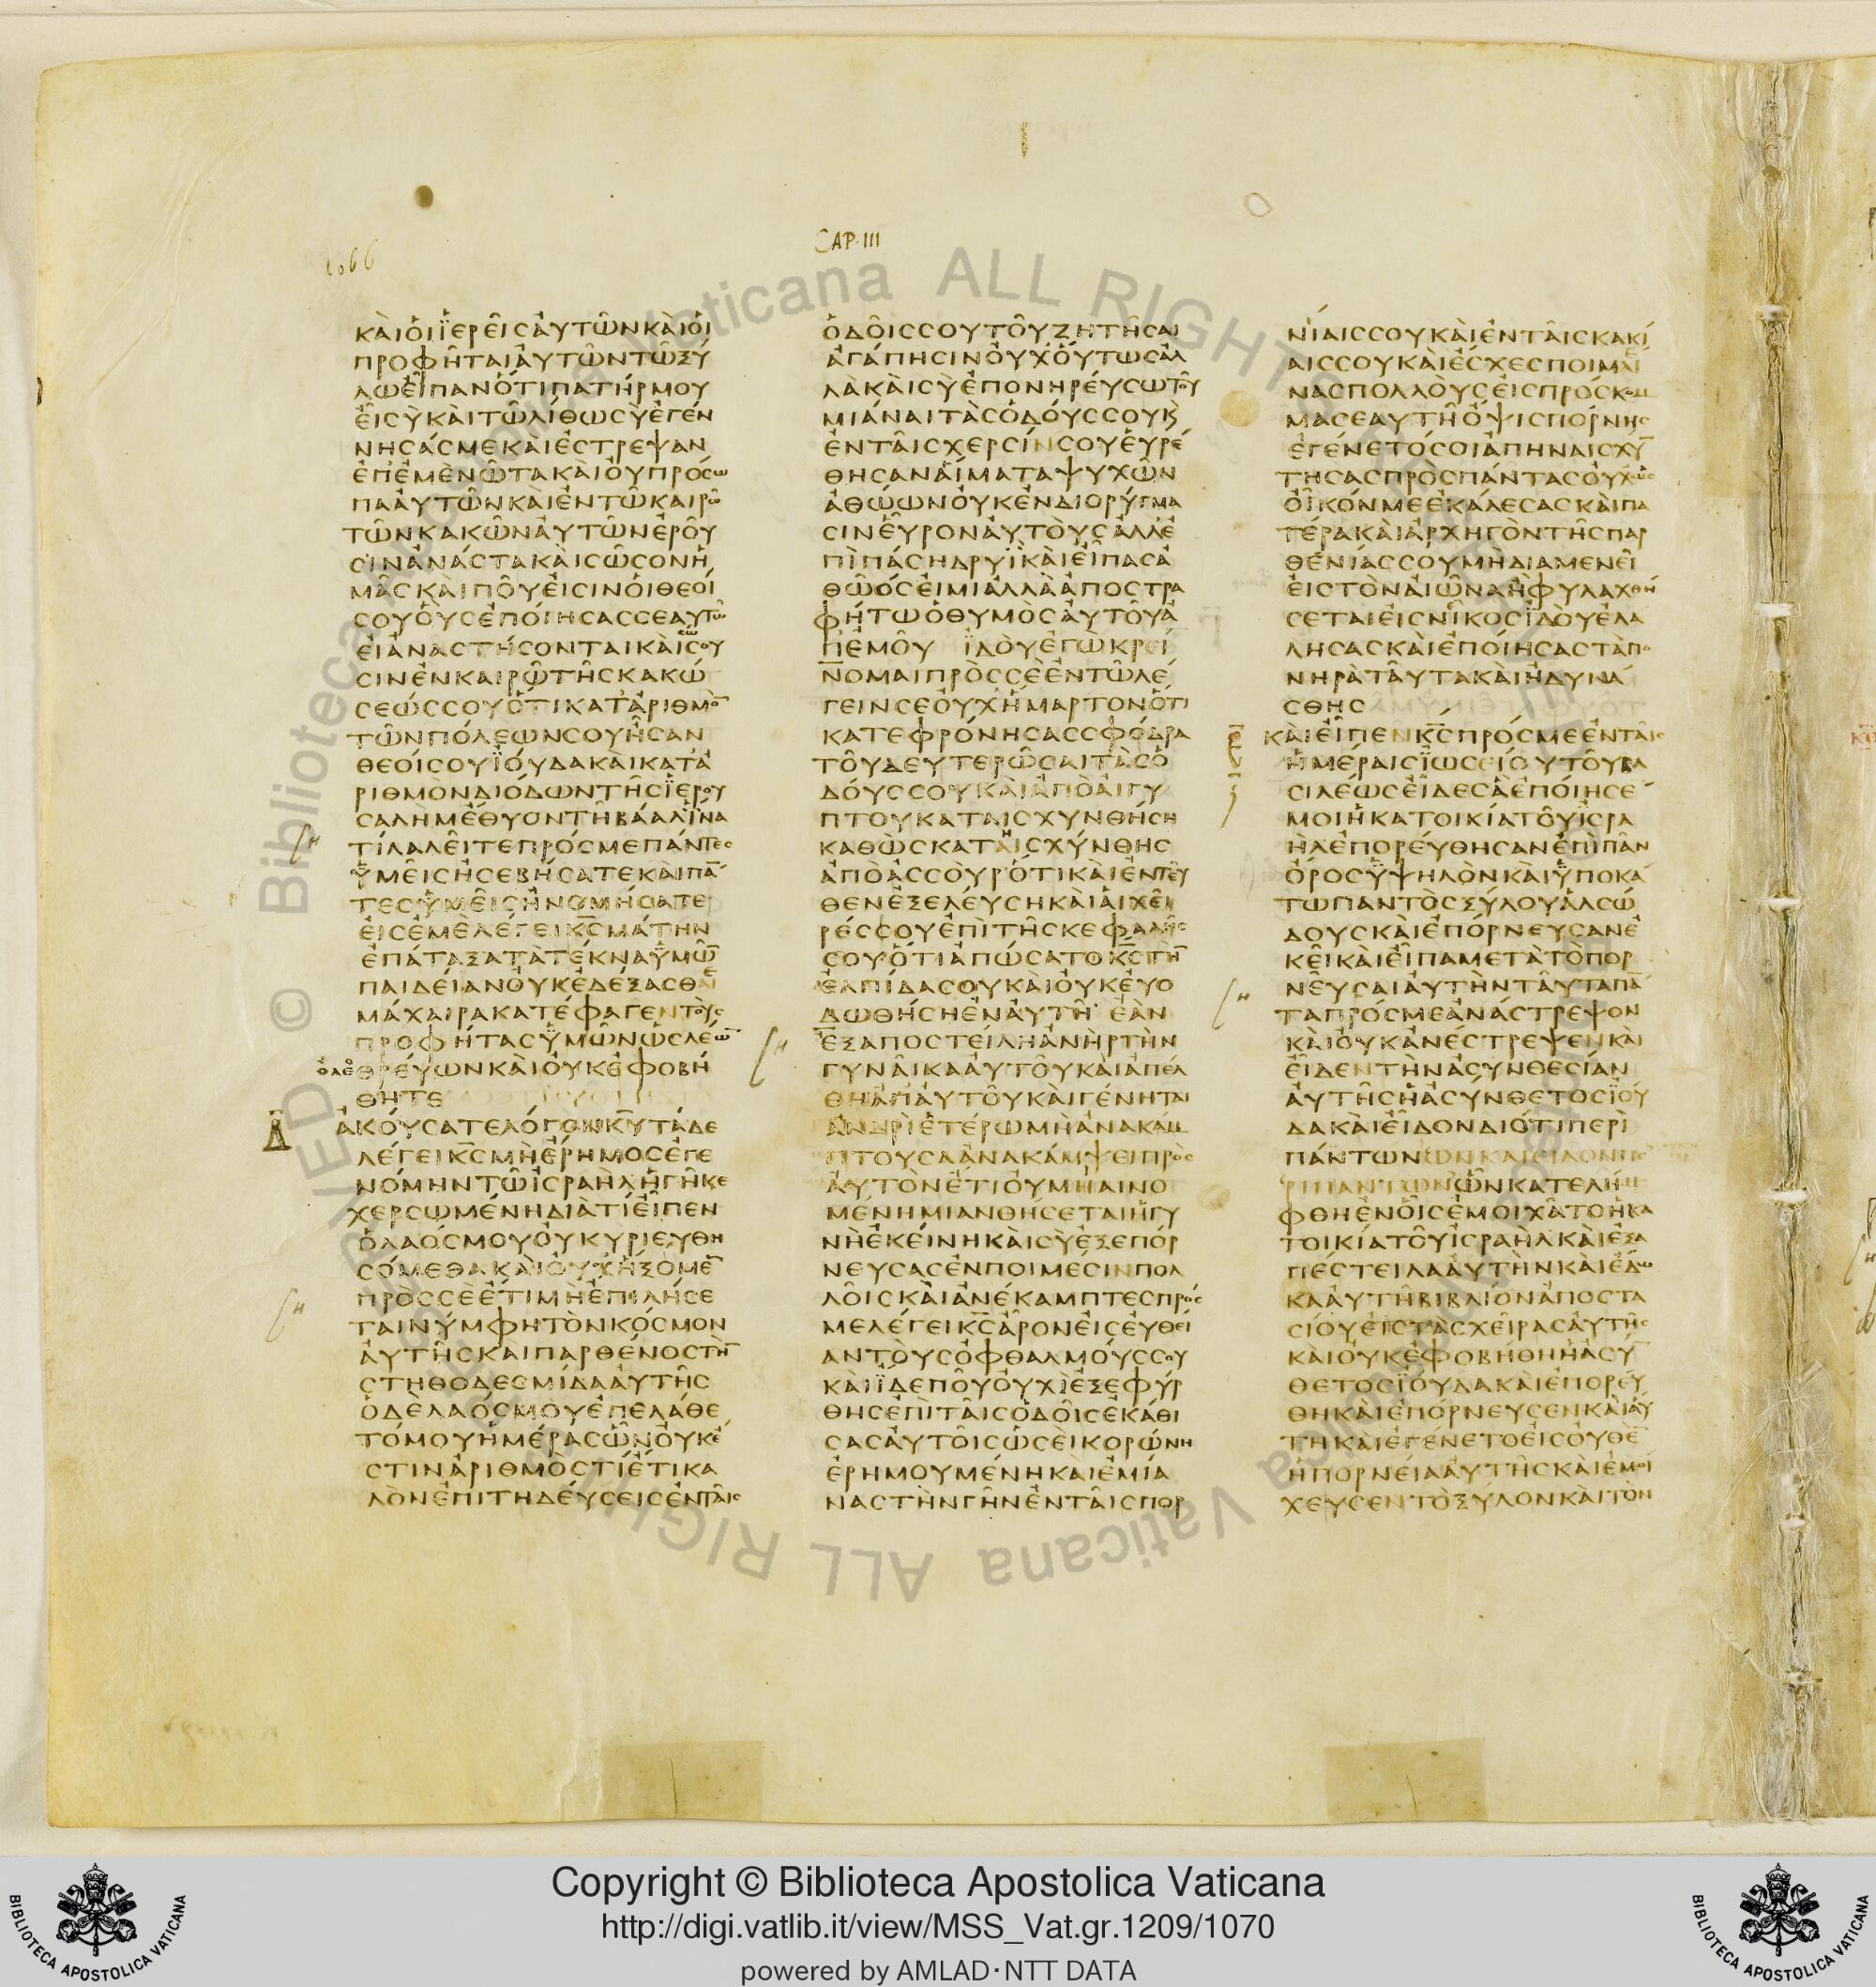 1066
CAP·III
ΚΑΙΟΙΪΕΡΕΙCΑΥΤΩΝΚΑΙΟΙ
ΠΡΟΦΗΤΑΙΑΥΤΩΝΤΩΞΥ
ΛΩΕΙΠΑΝΟΤΙΠΑΤΗΡΜΟΥ
ΕΙCΥΚΑΙΤΩΛΙΘΩCΥΕΓΕΝ
ΝΗCΑCΜΕΚΑΙΕCΤΡΕΨΑΝ
ΕΠΕΜΕΝΩΤΑΚΑΙΟΥΠΡΟCΩ
ΠΑΑΥΤΩΝΚΑΙΕΝΤΩΚΑΙΡΩ
ΤΩΝΚΑΚΩΝΑΥΤΩΝΕΡΟΥ
CΙΝΑΝΑCΤΑΚΑΙCΩCΟΝΗ
ΜΑCΚΑΙΠΟΥΕΙCΙΝΟΙΘΕΟΙ
CΟΥΟΥCΕΠΟΙΗCΑCCΕΑΥΤΩ
ΕΙΑΝΑCΤΗCΟΝΤΑΙΚΑΙCΩCΟΥ
CΙΝΕΝΚΑΙΡΩΤΗCΚΑΚΩ
CΕΩCCΟΥΟΤΙΚΑΤΑΡΙΘΜΟ̅
ΤΩΝΠΟΛΕΩΝCΟΥΗCΑΝ
ΘΕΟΙCΟΥΪΟΥΔΑΚΑΙΚΑΤΑ
ΡΙΘΜΟΝΔΙΟΔΩΝΤΗCΪΕΡΟΥ
CΑΛΗΜΕΘΥΟΝΤΗΒΑΑΛΙΝΑ
ΤΙΛΑΛΕΙΤΕΠΡΟCΜΕΠΑΝΤΕC
ΥΜΕΙCΗCΕΒΗCΑΤΕΚΑΙΠΑ̅
ΤΕCΥΜΕΙCΗΝΟΜΗCΑΤΕ
ΕΙCΕΜΕΛΕΓΕΙΚ̅C̅ΜΑΤΗΝ
ΕΠΑΤΑΞΑΤΑΤΕΚΝΑΥΜΩ̅
ΠΑΙΔΕΙΑΝΟΥΚΕΔΕΞΑCΘΑΕ
ΜΑΧΑΙΡΑΚΑΤΕΦΑΓΕΝΤΟΥC
ΠΡΟΦΗΤΑCΥΜΩΝΩCΛΕΩ̅
ΟΛΕΘΡΕΥΩΝΚΑΙΟΥΚΕΦΟΒΗ
ΘΗΤΕ
Δ̅ ΑΚΟΥCΑΤΕΛΟΓΟΝΚ̅Υ̅ΤΑΔΕ
ΛΕΓΕΙΚ̅C̅ΜΗΕΡΗΜΟCΕΓΕ
ΝΟΜΗΝΤΩΙCΡΑΗΛΗΓΗΚΕ
ΧΕΡCΩΜΕΝΗΔΙΑΤΙΕΙΠΕΝ
ΟΛΑΟCΜΟΥΟΥΚΥΡΙΕΥΘΗ
CΟΜΕΘΑΚΑΙΟΥΧΗΞΟΜΕ̅
ΠΡΟCCΕΕΤΙΜΗΕΠΙΛΗCΕ
ΤΑΙΝΥΜΦΗΤΟΝΚΟCΜΟΝ
ΑΥΤΗCΚΑΙΠΑΡΘΕΝΟCΤΗ̅
CΤΗΘΟΔΕCΜΙΔΑΑΥΤΗC
ΟΔΕΛΑΟCΜΟΥΕΠΕΛΑΘΕ
ΤΟΜΟΥΗΜΕΡΑCΩΝΟΥΚΕ
CΤΙΝΑΡΙΘΜΟCΤΙΕΤΙΚΑ
ΛΟΝΕΠΙΤΗΔΕΥCΕΙCΕΝΤΑΙC
ΟΔΟΙCCΟΥΤΟΥΖΗΤΗCΑΙ
ΑΓΑΠΗCΙΝΟΥΧΟΥΤΩCΑΛ
ΛΑΚΑΙCΥΕΠΟΝΗΡΕΥCΩΤΟΥ
ΜΙΑΝΑΙΤΑCΟΔΟΥCCΟΥΚ
ΕΝΤΑΙCΧΕΡCΙΝCΟΥΕΥΡΕ
ΘΗCΑΝΑΙΜΑΤΑΨΥΧΩΝ
ΑΘΩΩΝΟΥΚΕΝΔΙΟΡΥΓΜΑ
CΙΝΕΥΡΟΝΑΥΤΟΥCΑΛΛΕ
ΠΙΠΑCΗΔΡΥΪΚΑΙΕΙΠΑCΑ
ΘΩΟCΕΙΜΙΑΛΛΑΑΠΟCΤΡΑ
ΦΗΤΩΟΘΥΜΟCΑΥΤΟΥΑ
ΠΕΜΟΥ ΪΔΟΥΕΓΩΚΡΕΙ
ΝΟΜΑΙΠΡΟCCΕΕΝΤΩΛΕ
ΓΕΙΝCΕΟΥΧΗΜΑΡΤΟΝΟΤΙ
ΚΑΤΕΦΡΟΝΗCΑCCΦΟΔΡΑ
ΤΟΥΔΕΥΤΕΡΩCΑΙΤΑCΟ
ΔΟΥCCΟΥΚΑΙΑΠΟΑΙΓΥ
ΠΤΟΥΚΑΤΑΙCΧΥΝΘΗCΗ
ΚΑΘΩCΚΑΤΗΙCΧΥΝΘΗC
ΑΠΟΑCCΟΥΡΟΤΙΚΑΙΕΝΤΕΥ
ΘΕΝΕΞΕΛΕΥCΗΚΑΙΑΙΧΕΙ
ΡΕCCΟΥΕΠΙΤΗCΚΕΦΑΛΗC
CΟΥΟΤΙΑΠΩCΑΤΟΚ̅C̅ΤΗ̅
ΕΛΠΙΔΑCΟΥΚΑΙΟΥΚΕΥΟ
ΔΩΘΗCΗΕΝΑΥΤΗ ΕΑΝ
ΕΞΑΠΟCΤΕΙΛΗΑΝΗΡΤΗΝ
ΓΥΝΑΙΚΑΑΥΤΟΥΚΑΙΑΠΕΛ
ΘΗΑΠΑΥΤΟΥΚΑΙΓΕΝΗΤΑΙ
ΑΝΔΡΙΕΤΕΡΩΜΗΑΝΑΚΑΜ
ΠΤΟΥCΑΑΝΑΚΑΜΨΕΙΠΡΟC
ΑΥΤΟΝΕΤΙΟΥΜΗΑΙΝΟ
ΜΕΝΗΜΙΑΝΘΗCΕΤΑΙΗΓΥ
ΝΗΕΚΕΙΝΗΚΑΙCΥΕΞΕΠΟΡ
ΝΕΥCΑCΕΝΠΟΙΜΕCΙΝΠΟΛ
ΛΟΙCΚΑΙΑΝΕΚΑΜΠΤΕCΠΡΟC
ΜΕΛΕΓΕΙΚ̅C̅ΑΡΟΝΕΙCΕΥΘΕΙ
ΑΝΤΟΥCΟΦΘΑΛΜΟΥCCΟΥ
ΚΑΙΪΔΕΠΟΥΟΥΧΙΕΞΕΦΥΡ
ΘΗCΕΠΙΤΑΙCΟΔΟΙCΕΚΑΘΙ
CΑCΑΥΤΟΙCΩCΕΙΚΟΡΩΝΗ
ΕΡΗΜΟΥΜΕΝΗΚΑΙΕΜΙΑ
ΝΑCΤΗΝΓΗΝΕΝΤΑΙCΠΟΡ
ΝΙΑΙCCΟΥΚΑΙΕΝΤΑΙCΚΑΚΙ
ΑΙCCΟΥΚΑΙΕCΧΕCΠΟΙΜΑΙ
ΝΑCΠΟΛΛΟΥCΕΙCΠΡΟCΚΟΜ
ΜΑCΕΑΥΤΗΟΨΙCΠΟΡΝΗC
ΕΓΕΝΕΤΟCΟΙΑΠΗΝΑΙCΧΥ̅
ΤΗCΑCΠΡΟCΠΑΝΤΑCΟΥΧΩC
ΟΙΚΟΝΜΕΕΚΑΛΕCΑCΚΑΙΠΑ
ΤΕΡΑΚΑΙΑΡΧΗΓΟΝΤΗCΠΑΡ
ΘΕΝΙΑCCΟΥΜΗΔΙΑΜΕΝΕΙ
ΕΙCΤΟΝΑΙΩΝΑΗΦΥΛΑΧΘΗ
CΕΤΑΙΕΙCΝΙΚΟCΪΔΟΥΕΛΑ
ΛΗCΑCΚΑΙΕΠΟΙΗCΑCΤΑΠΟ
ΝΗΡΑΤΑΥΤΑΚΑΙΗΔΥΝΑ
CΘΗC
ΚΑΙΕΙΠΕΝΚ̅C̅ΠΡΟCΜΕΕΝΤΑΙC
ΗΜΕΡΑΙCΪΩCΕΙΟΥΤΟΥΒΑ
CΙΛΕΩCΕΙΔΕCΑΕΠΟΙΗCΕ
ΜΟΙΗΚΑΤΟΙΚΙΑΤΟΥΙCΡΑ
ΗΛΕΠΟΡΕΥΘΗCΑΝΕΠΙΠΑΝ
ΟΡΟCΥΨΗΛΟΝΚΑΙΥΠΟΚΑ
ΤΩΠΑΝΤΟCΞΥΛΟΥΑΛCΩ
ΔΟΥCΚΑΙΕΠΟΡΝΕΥCΑΝΕ
ΚΕΙΚΑΙΕΙΠΑΜΕΤΑΤΟΠΟΡ
ΝΕΥCΑΙΑΥΤΗΝΤΑΥΤΑΠΑ̅
ΤΑΠΡΟCΜΕΑΝΑCΤΡΕΨΟΝ
ΚΑΙΟΥΚΑΝΕCΤΡΕΨΕΝΚΑΙ
ΕΙΔΕΝΤΗΝΑCΥΝΘΕCΙΑΝ
ΑΥΤΗCΗΑCΥΝΘΕΤΟCΪΟΥ
ΔΑΚΑΙΕΙΔΟΝΔΙΟΤΙΠΕΡΙ
ΠΑΝΤΩΝΩΝΚΑΙΕΙΔΟΝΠΕ
ΡΙΠΑΝΤΩΝΩΝΚΑΤΕΛΗΜ
ΦΘΗΕΝΟΙCΕΜΟΙΧΑΤΟΗΚΑ
ΤΟΙΚΙΑΤΟΥΙCΡΑΗΛΚΑΙΕΞΑ
ΠΕCΤΕΙΛΑΑΥΤΗΝΚΑΙΕΔΩ
ΚΑΑΥΤΗΒΙΒΛΙΟΝΑΠΟCΤΑ
CΙΟΥΕΙCΤΑCΧΕΙΡΑCΑΥΤΗC
ΚΑΙΟΥΚΕΦΟΒΗΘΗΗΑCΥ̅
ΘΕΤΟCΪΟΥΔΑΚΑΙΕΠΟΡΕΥ
ΘΗΚΑΙΕΠΟΡΝΕΥCΕΝΚΑΙΑΥ
ΤΗΚΑΙΕΓΕΝΕΤΟΕΙCΟΥΘΕ̅
ΗΠΟΡΝΕΙΑΑΥΤΗCΚΑΙΕΜΟΙ
ΧΕΥCΕΝΤΟΞΥΛΟΝΚΑΙΤΟΝ
Copyright © Biblioteca Apostolica Vaticana
http://digi.vatlib.it/view/MSS_Vat.gr.1209/1070
powered by AMLAD·NTT DATA
BIBLIOTECA APOSTOLICA VATICANA
BIBLIOTECA APOSTOLICA VATICANA